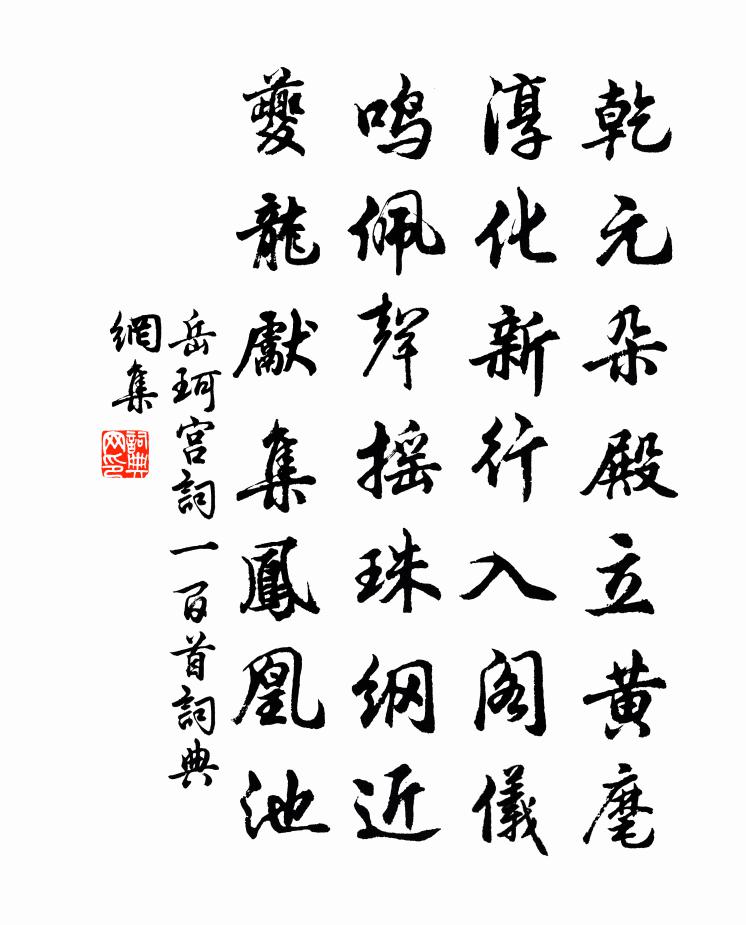 乾元朵殿立黄麾
淳化新行入阁儀
鸣佩聲摇珠纲近
夔龍獻集鳳凰池
岳珂宫詞一百首詞典
網集
詞典
网印